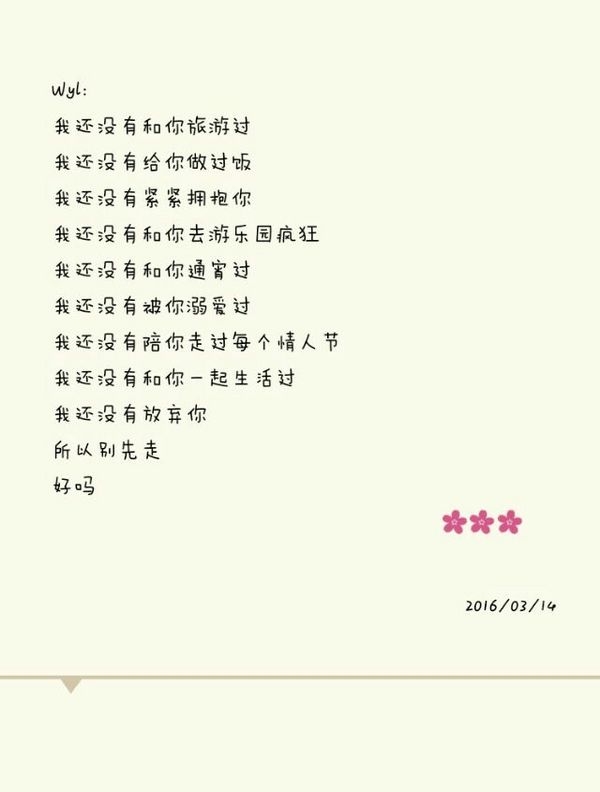 Wyl:
我还没有和你旅游过
我还没有给你做过饭
我还没有紧紧拥抱你
我还没有和你去游乐园疯狂
我还没有和你通宵过
我还没有被你溺爱过
我还没有陪你走过每个情人节
我还没有和你一起生活过
我还没有放弃你
所以别先走
好吗
2016/03/14